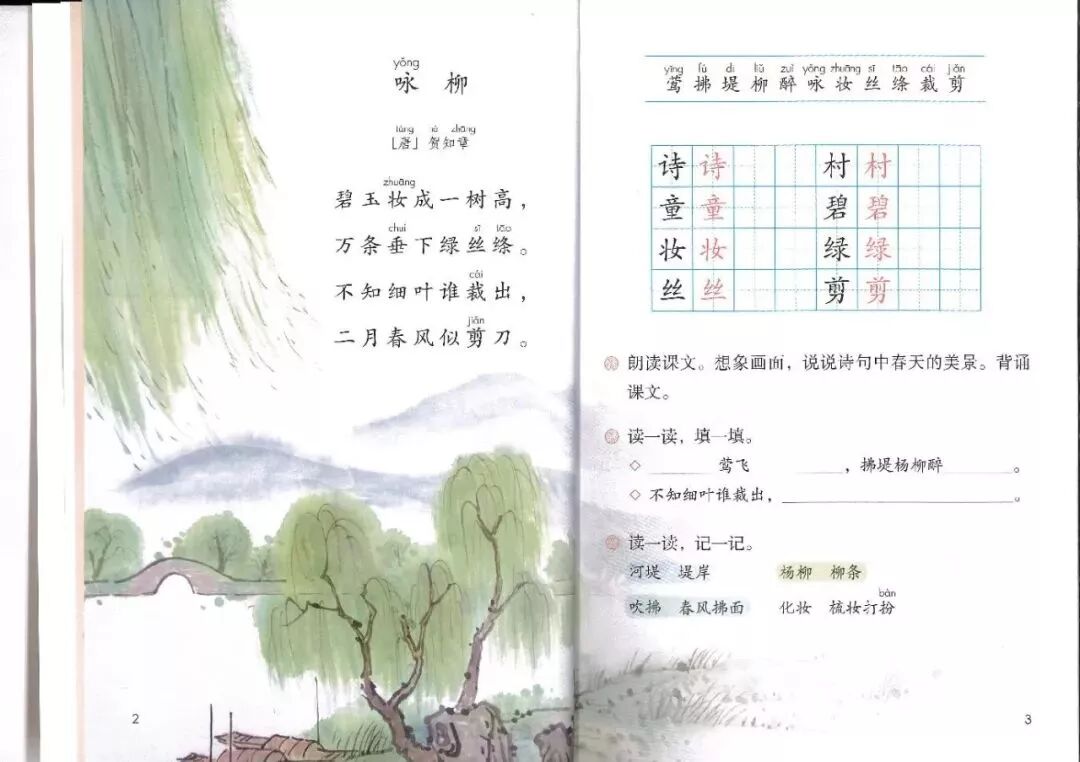 yǒng
咏 柳
táng hè zhāng
［唐］贺知章
zhuāng
碧玉妆成一树高，
chuí sī tāo
万条垂下绿丝绦。
cái
不知细叶谁裁出，
jiǎn
二月春风似剪刀。
2
yīng fú dī liǔ zuì yǒng zhuāng sī tāo cái jiǎn
莺 拂 堤 柳 醉 咏 妆 丝 绦 裁 剪
诗 诗 村 村
童 童 碧 碧
妆 妆 绿 绿
丝 丝 剪 剪
朗读课文。想象画面，说说诗句中春天的美景。背诵
课文。
读一读，填一填。
◇ ______莺飞______，拂堤杨柳醉______。
◇ 不知细叶谁裁出，____________。
读一读，记一记。
河堤 堤岸 杨柳 柳条
bàn
吹拂 春风拂面 化妆 梳妆打扮
3